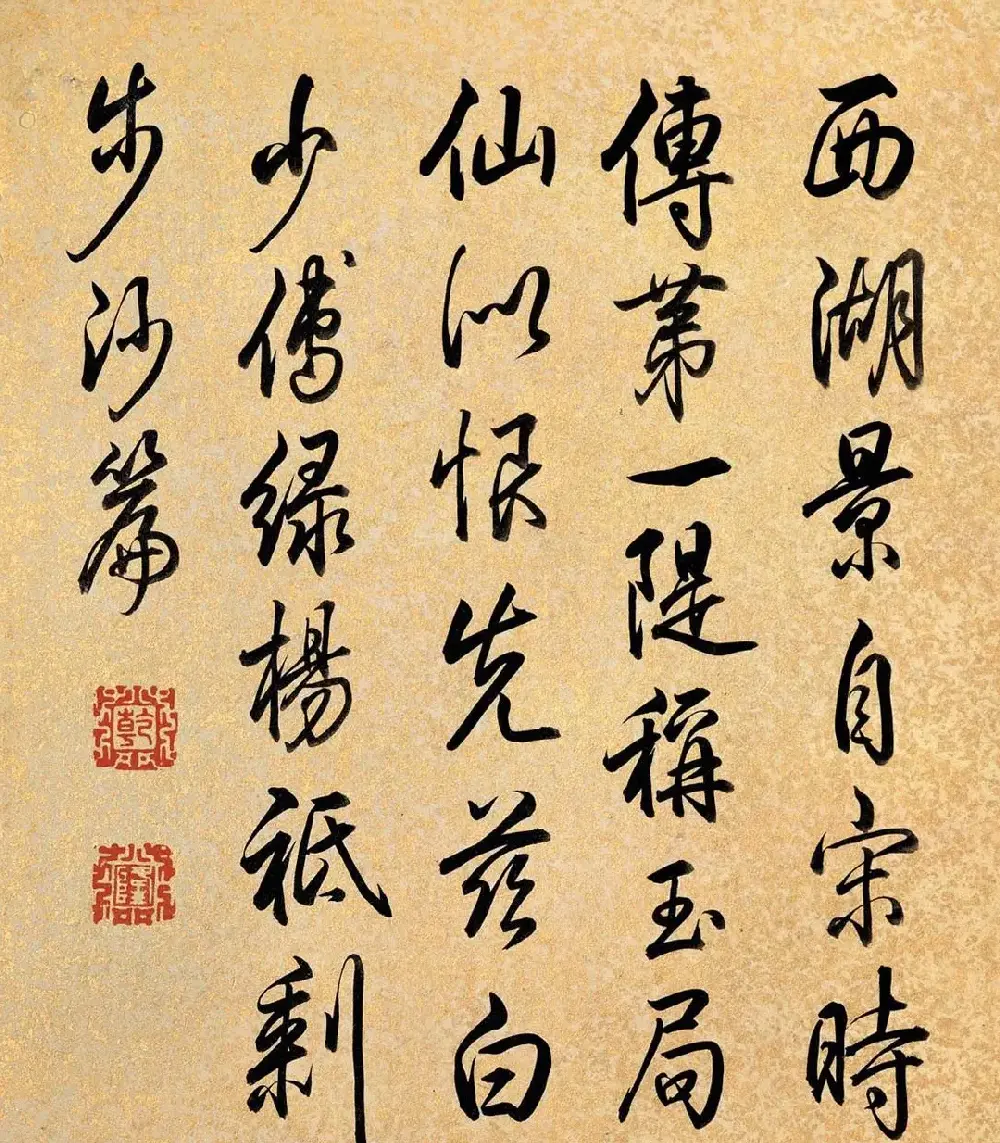 西湖景自宋時
傳第一隄稱玉局
仙似恨先茲白
少傅綠楊祗剩
步沙篇
乾
隆